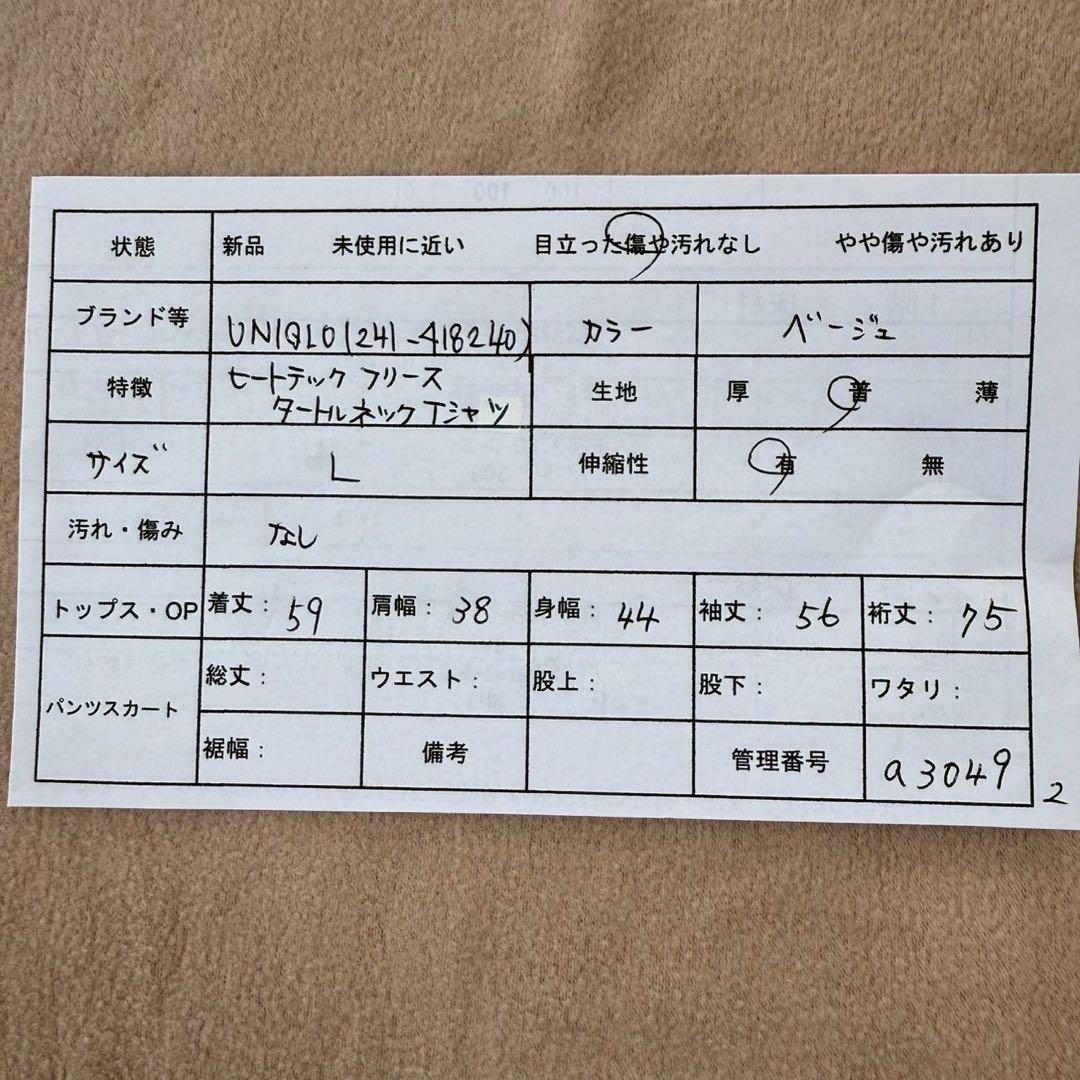 状態 新品 未使用に近い 目立った傷や汚れなし やや傷や汚れあり
ブランド等 UNIQLO(241-418240) カラー ベージュ
特徴 ヒートテックフリース
タートルネックTシャツ 生地 厚 普 薄
サイズ L 伸縮性 有 無
汚れ・傷み なし
トップス・OP 着丈：59 肩幅：38 身幅：44 袖丈：56 裄丈：75
パンツスカート 総丈： ウエスト： 股上： 股下： ワタリ：
裾幅： 備考 管理番号 a3049
2